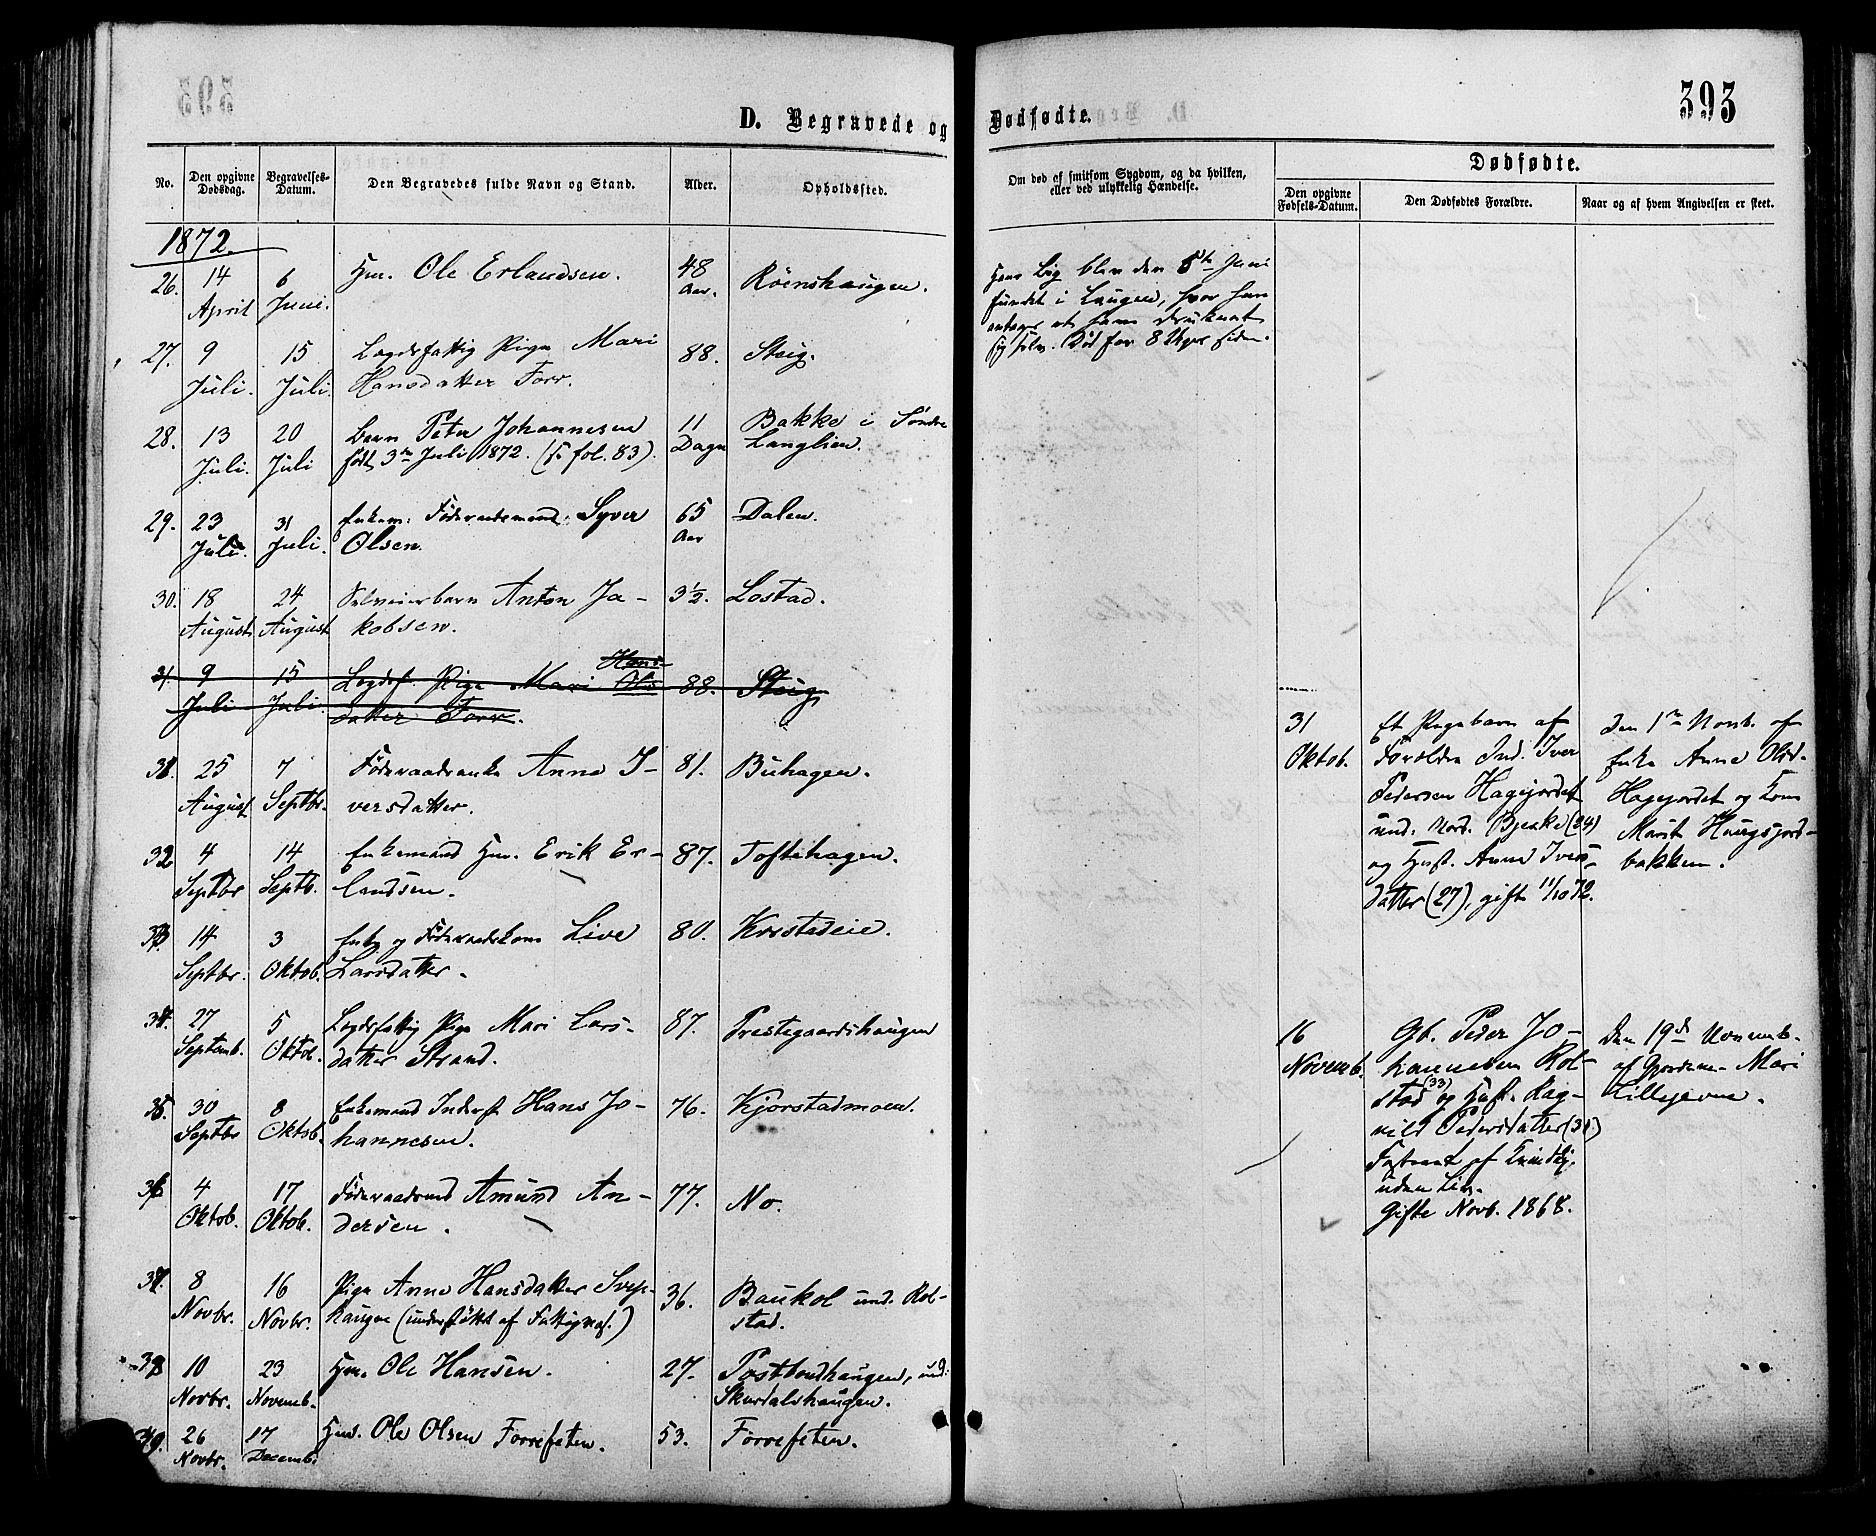 393
D. Begravede og Dødfødte.
No.
Den opgivne Dødsdag.
Begravelses-Datum.
Den Begravedes fulde Navn og Stand.
Alder.
Opholdssted.
Om død af smitsom Sygdom, og da hvilken,
eller ved ulykkelig Hændelse.
Dødfødte.
Den opgivne Fødsels-Datum.
Den Dødfødtes Forældre.
Naar og af hvem Angivelsen er skeet.
1872.
26. 14 6 Hm. Ole Erlandsen. 48 Røenshaugen.
April Juni. Aar.
Hans Lig blev den 5te Juni
fundet i Laugen, hvor han
antages at have druknet
sig selv. Død for 8 Uger siden.
27. 9 15 Lægdsfattig Pige Mari 88. Steig.
Juli. Juli. Hansdatter Forr.
28. 13 20 Barn Peter Johannesen 11 Bakke i Søndre
Juli. Juli født 3die Juli 1872. (S. fol. 83). Dage Langlien.
29. 23 31 Enkem. Føderaadsmand Syver 65 Dalen.
Juli. Juli. Olsen. Aar
30. 18 24 Selveierbarn Anton Ja- 3½. Lostad.
August August kobsen.
31. 9 15 Lægdsf. Pige Mari Ols Hans- 88. Steig
Juli Juli. datter Forr.
31. 25 7 Føderaadsenke Anne I- 81. Buhagen.
August Septbr. versdatter.
32 4 14 Enkemand Hm. Erik Er- 87. Toftehagen.
Septbr Septb. landsen.
33 14 3 Enke og Føderaadskone Live 80. Krostadeie.
Septbr. Oktob. Larsdatter.
34. 27 5 Lægdsfattig Pige Mari Lars- 87. Prestegaardshaugen
Septemb. Oktob. datter Strand.
35. 30 8 Enkemand Inderst Hans Jo- 76. Kjorstadmoen.
Septbr Oktob. hannesen.
36 4 17 Føderaadsmd Amund An- 77. No.
Oktob. Oktob. dersen.
37. 8 16 Pige Anne Hansdatter Svep- 36. Baukol und. Rol-
Novbr. Novbr. haugen (understøttet af Fattigvæs.) stad.
38 10 23 Hm. Ole Hansen. 27. Postboudhaugen, und.
Novbr. Novemb. Skurdalshaugen.
39. 26 17 Hmd. Ole Olsen Forrefeten. 53. Forrefeten.
Novbr. Decemb.
31
Oktob.
Et Pigebarn af
Forældre Ind. Iver
Pedersen Hagejordet
und. Nord. Bjerke (24)
og Hust. Anne Ivers-
datter (27), gifte 11/10 72.
Den 1ste Novb. af
Enke Anne Olsd.
Hagejordet og Kone
Marit Haugsjord-
bakken.
16
Novemb.
Gb. Peder Jo-
hannesen Rol-
stad (33) og Hust. Rag-
nild Pedersdatter (31)
Fostret af Kvindekj.
uden Liv.
Gifte Novb. 1868.
Den 19de Novemb.
af Gjordem. Mari
Lillejevne.